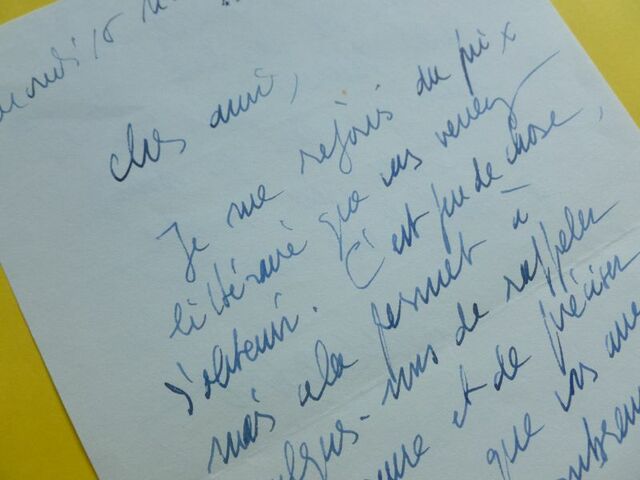 Cher ami,
Je me réjouis du prix
littéraire que vous venez
d'obtenir. C'est peu de chose,
mais cela permet à
quelques-uns de rappeler
et de préciser
que vous